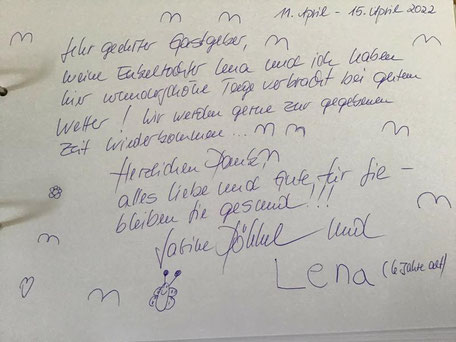 11. April - 15. April 2022
Sehr geehrter Gastgeber,
meine Enkeltochter Lena und ich haben
hier wunderschöne Tage verbracht bei gutem
Wetter! Wir werden gerne zur gegebenen
Zeit wiederkommen...
Herzlichen Dank,
alles liebe und Gute für Sie -
bleiben Sie gesund!!!
Sabine und
Lena (6 Jahre alt)